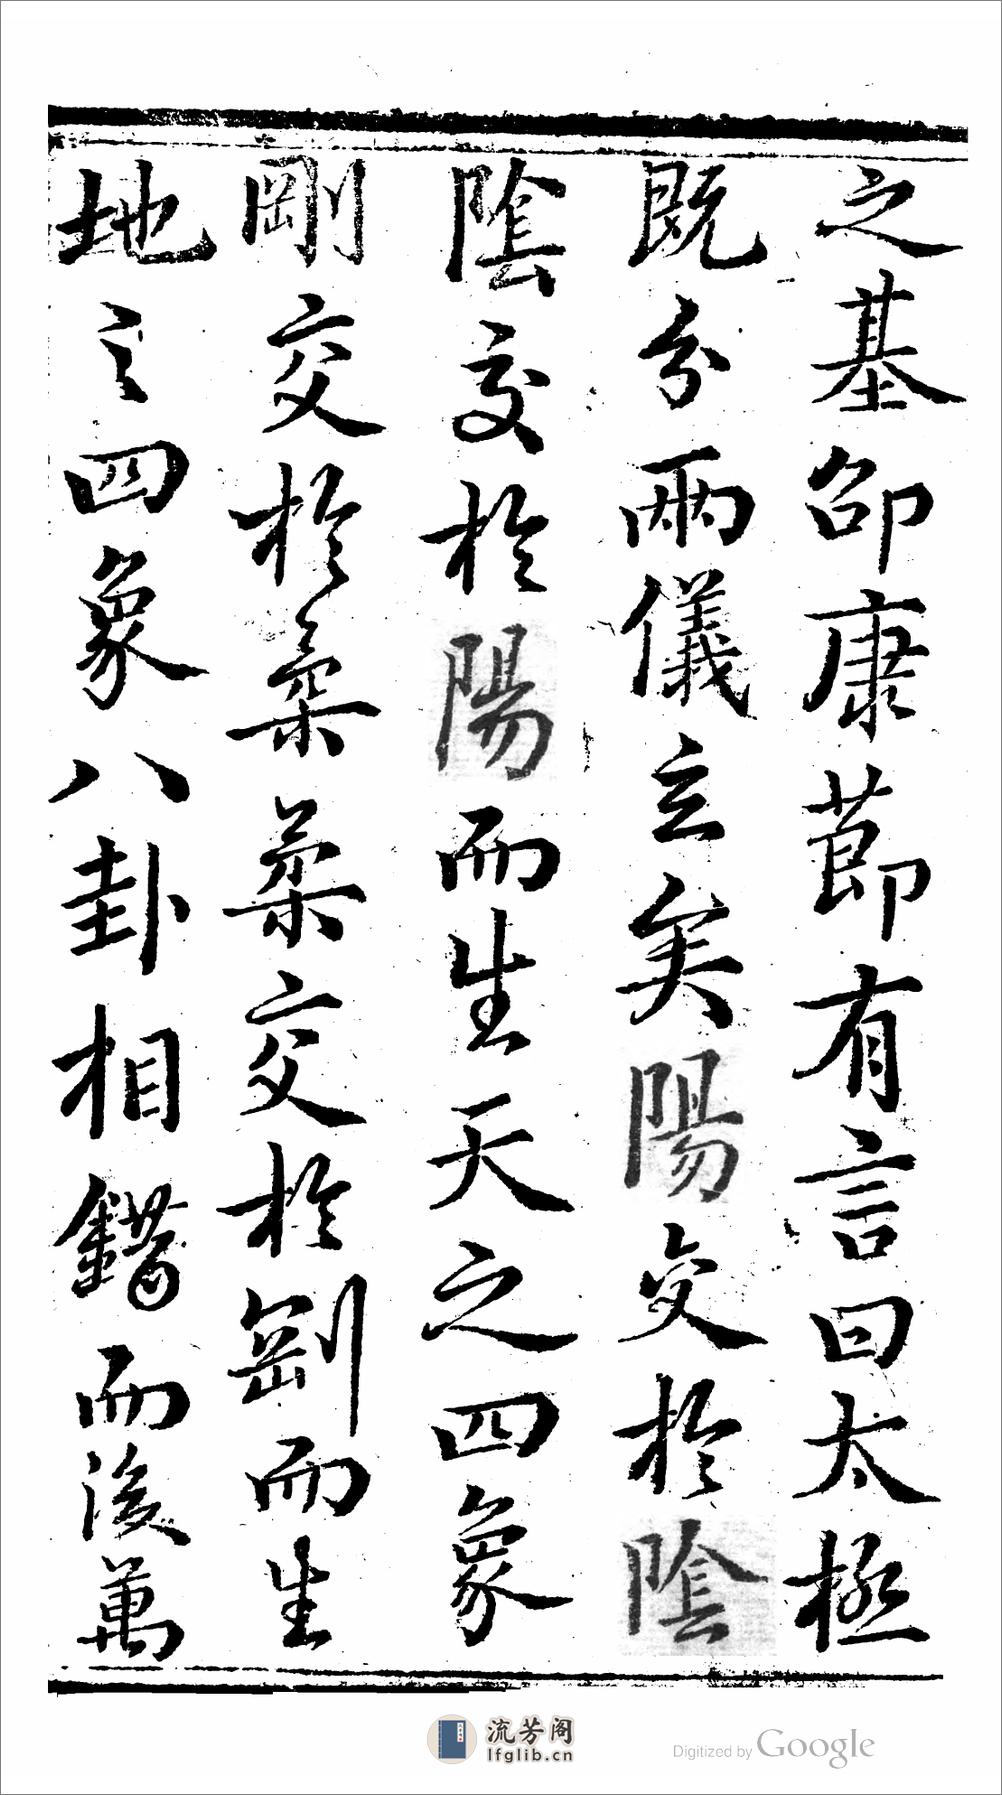 之基邵康節有言曰太極
既分兩儀立矣陽交於陰
陰交於陽而生天之四象
剛交於柔柔交於剛而生
地之四象八卦相錯而後萬
流芳阁
lfglib.cn
Digitized by Google